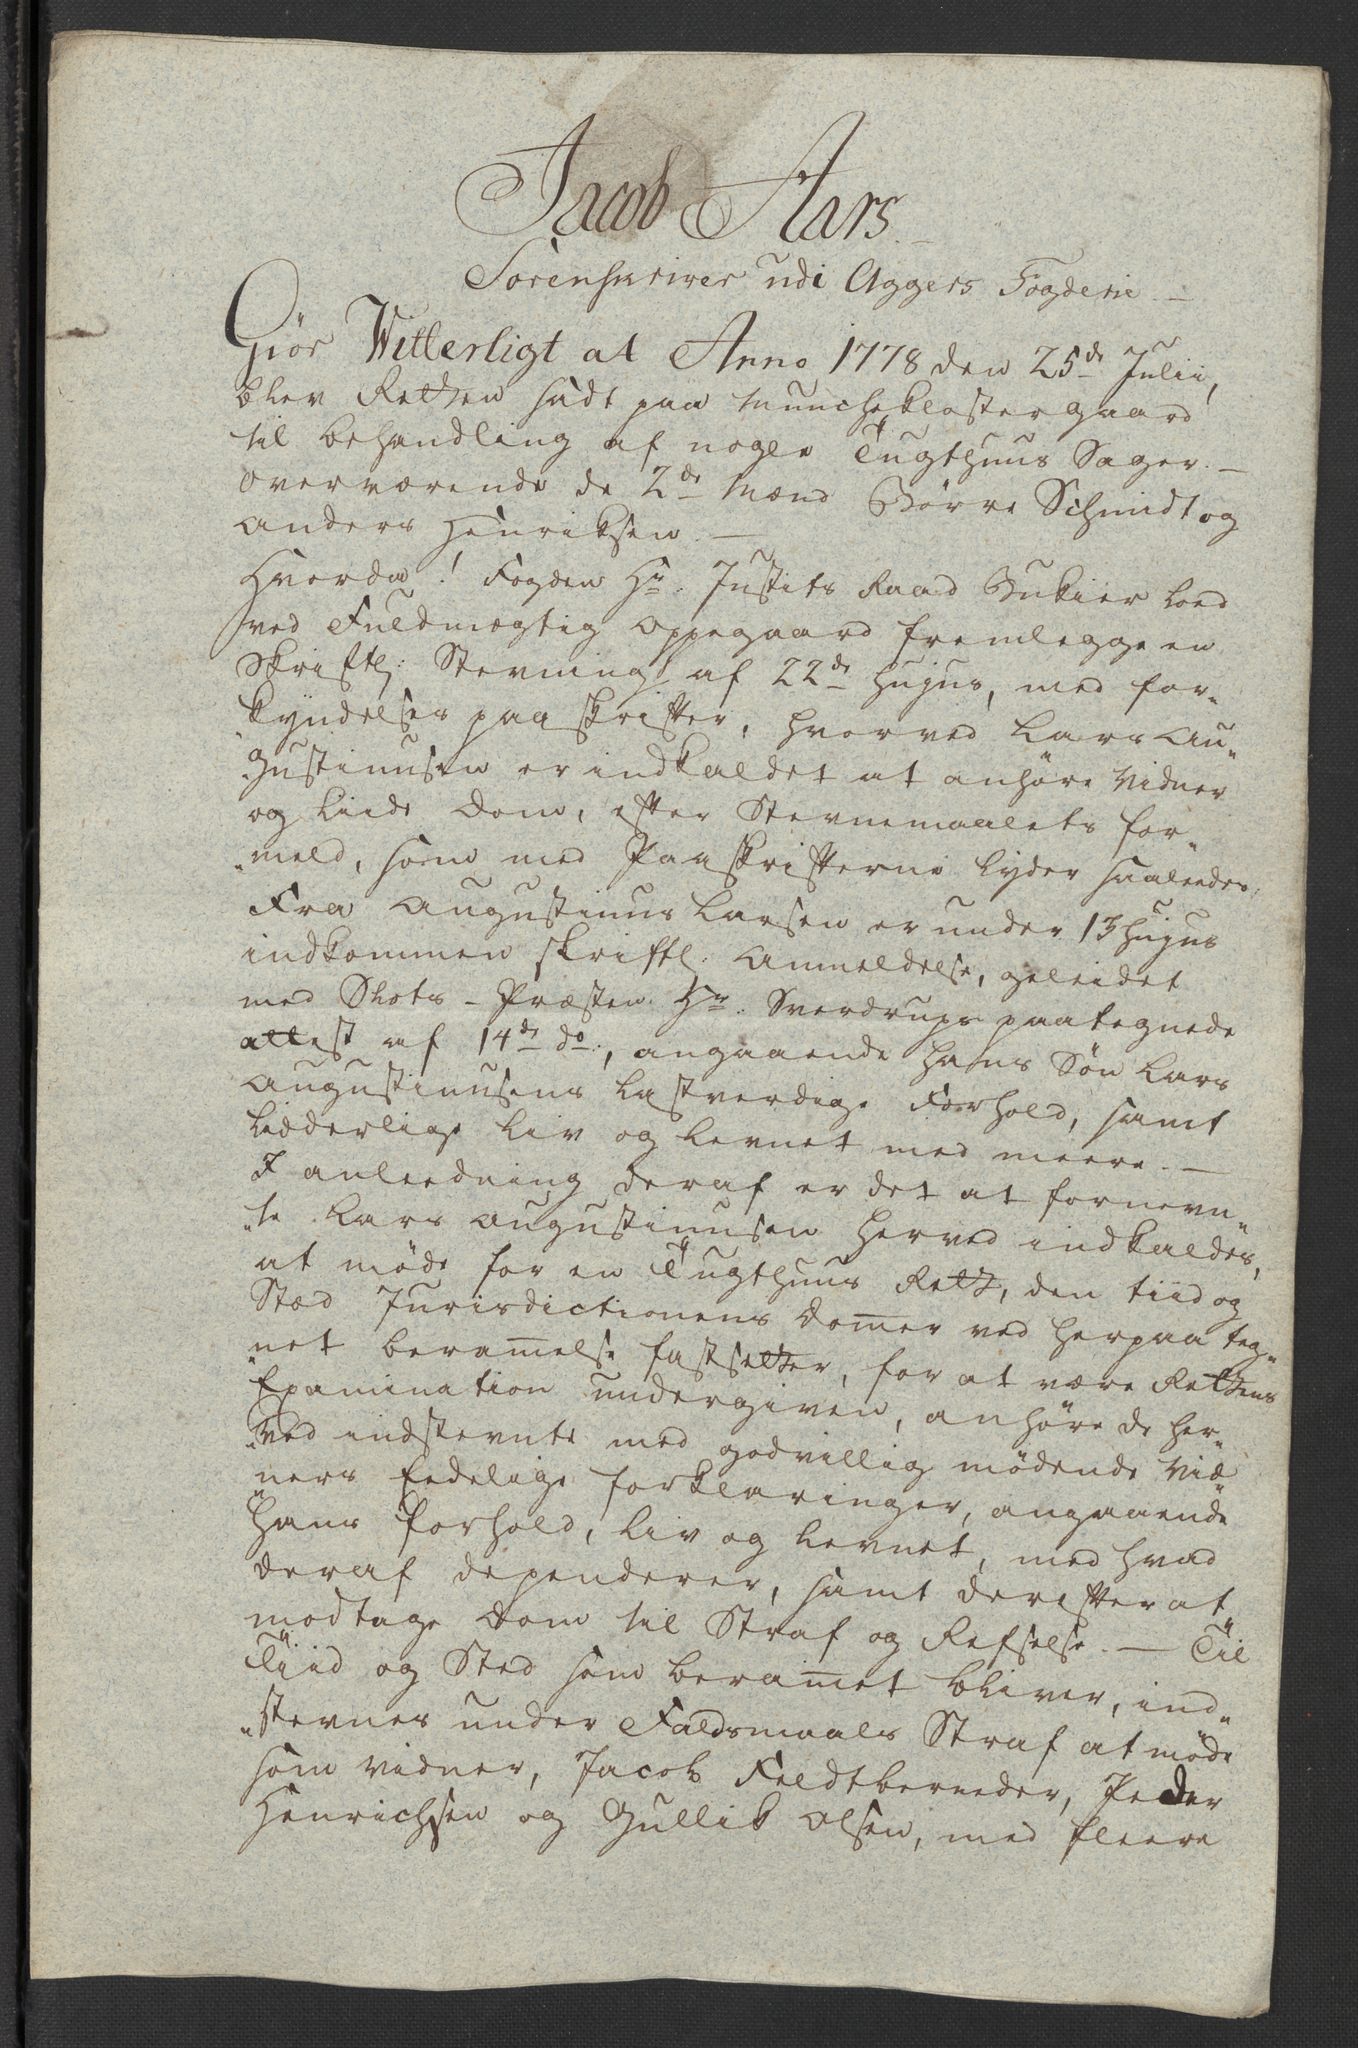 Jacob Aars
Sorenskriver udi Aggers Fogderie
Giör Witterligt at Anno 1778 den 25de Julii,
blev Retten sadt paa Munchekloster gaard
til behandling af nogle Tugthuus Sager. —
overværende de 2de Mænd Börre Schmidt og
Anders Henriksen —
Hvorda! Fogden Hr: Justits Raad Bukier loed
ved Fuldmægtig Oppegaard fremlegge en
Skriftl: Stevning af 22de hujus, med for-
kyndelses paaskrifter, hvorved Lars Au-
gustinusen er indkaldet at anhöre Vidner
og liide Dom, efter Stevnemaalets for-
meld, som med Paaskrifterne lyder saaledes:
Fra Augustinus Larsen er under 13 hujus
indkommen skriftl: Anmeldelse, geleidet
med Slots-Præsten Hr: Sverdrups paategnede
attest af 14de do:, angaaende hans Sön Lars
Augustinusens lastverdige Forhold, samt
Lidderlige Liv og Levnet med meere. —
I anleedning deraf er det at fornevn-
te Lars Augustinusen herved indkaldes,
at möde for en Tugthuus Rett, den tiid og
Stæd Jurisdictionens Domer ved herpaa teg-
net beramelse fastsetter, for at være Rettens
Examination undergiven, anhöre de her-
ved indstevnte med godvillig mödende Vid-
ners Eedelige forklaringer, angaaende
hans Forhold, Liv og Levnet, med hvad
deraf dependerer, samt derefter at
modtage Dom til Straf og Refselse. — Til
Tiid og Sted som beramet bliver, ind-
stevnes under Faldsmaals Straf at möde
som vidner, Jacob Feldtbereder, Peder
Henrichsen og Gullik Olsen, med fleere